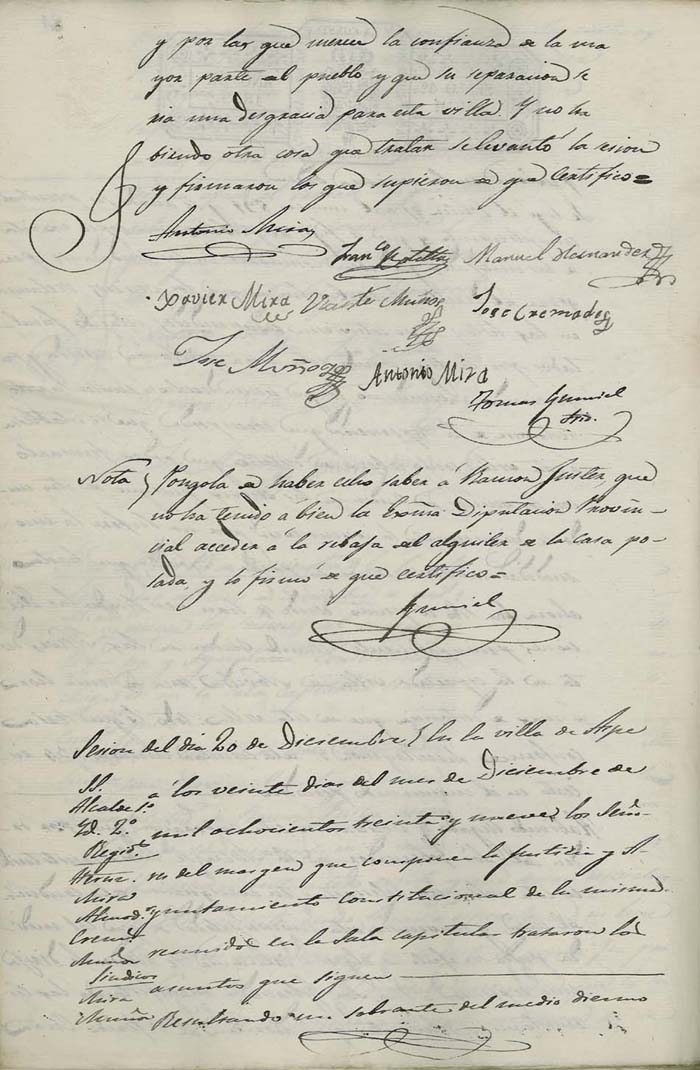 y por las que merece la confianza de la ma
yor parte del pueblo y que su separacion se
ria una desgracia para esta villa. Y no ha
biendo otra cosa que tratar se levantó la sesion
y firmaron los que supieron de que certifico =
Antonio Mira
Franco Manuel Hernandez
Xavier Mira Vizente Muñoz Jose Cremades
Jose Muñoz Antonio Mira
Tomas Gumiel
Srio.
Nota } Pongola de haber echo saber á Ramon Juster, que
no ha tenido á bien la Exma Diputacion Provin-
cial acceder á la rebaja del alquiler de la casa po-
sada, y lo firmó de que certifico =
Gumiel
Sesion del dia 20 de Diciembre } En la villa de Aspe
SS. á los veinte dias del mes de Diciembre de
Alcalde 1º
Id. 2º mil ochocientos treinta y nueve los Seño-
Regids
res del margen que componen la Justicia y A-
Mira
Almodr yuntamiento constitucional de la misma
Cremds
Muñoz reunidos en la Sala capitular trataron los
Sindicos
Mira asuntos que siguen
Muñoz Resultando un sobrante del medio diezmo